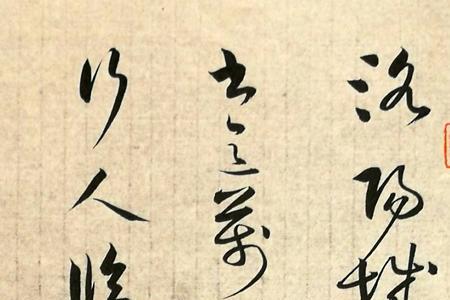 洛陽城
書意萬
行人臨